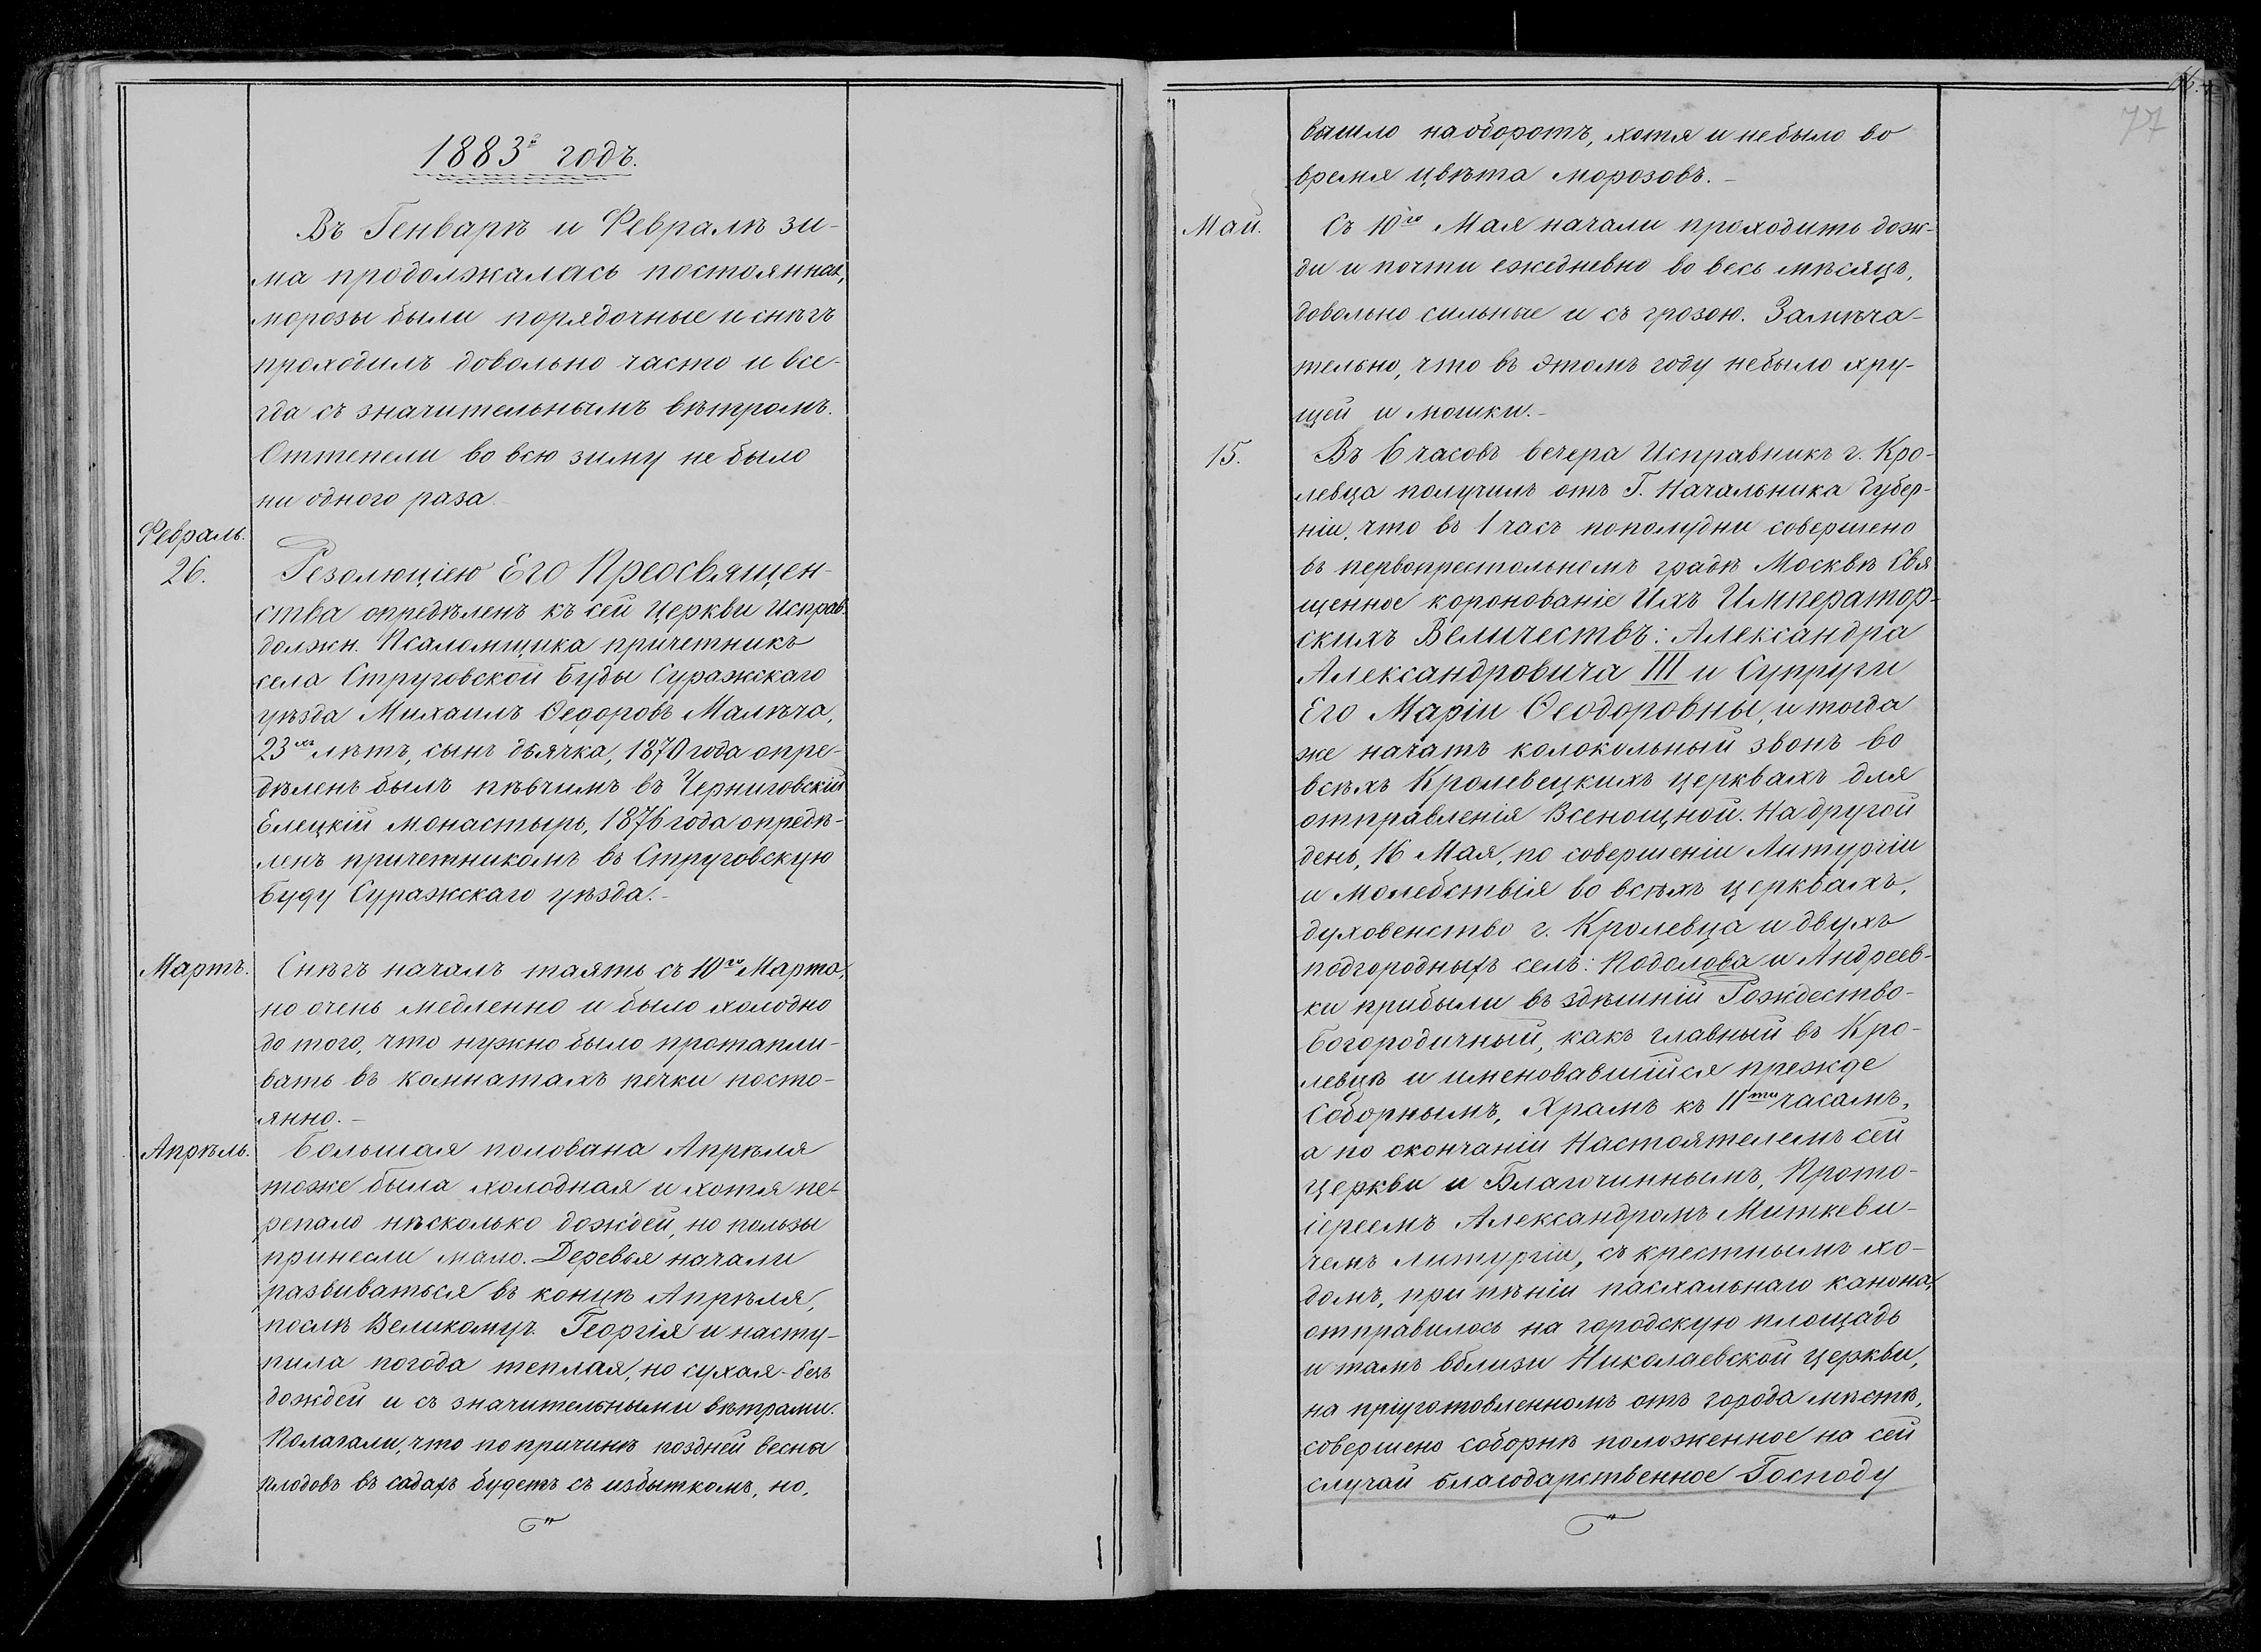 1883й годъ.
Въ Генварѣ и Февралѣ зи-
ма продолжалась постоянная,
морозы были порядочные и снѣгъ
проходилъ довольно часто и все-
гда съ значительнымъ вѣтромъ.
Оттепели во всю зиму не было
ни одного раза.
Февраль.
26.
Резолюціею Его Преосвящен-
ства опредѣленъ къ сей церкви исправ.
должн. Псаломщика причетникъ
села Струговской Буды Суражскаго
уѣзда Михаилъ Ѳедоровъ Малѣча,
23хъ лѣтъ, сынъ дьячка, 1870 года опре-
дѣленъ былъ пѣвчимъ въ Черниговскій
Елецкій монастырь, 1876 года опредѣ-
ленъ причетникомъ въ Струговскую
Буду Суражскаго уѣзда.-
Мартъ.
Снѣгъ началъ таять съ 10го Марта,
но очень медленно и было холодно
до того, что нужно было протапли-
вать въ комнатахъ печки посто-
янно.-
Апрѣль.
Большая полована Апрѣля
тоже была холодная и хотя пе-
репало нѣсколько дождей, но пользы
принесли мало. Деревья начали
развиваться въ концѣ Апрѣля,
послѣ Великомуч. Георгія и насту-
пила погода теплая, но сухая-безъ
дождей и съ значительными вѣтрами.
Полагали, что по причинѣ поздней весны
плодовъ въ садахъ будетъ съ избыткомъ, но,
77
вышло наоборотъ, хотя и небыло во
время цвѣта морозовъ.-
Май.
Съ 10го Мая начали проходить дож-
ди и почти ежедневно во весь мѣсяцъ,
довольно сильные и съ грозою. Замѣча-
тельно, что въ этомъ году небыло хру-
щей и мошки.-
15.
Въ 6 часовъ вечера Исправникъ г. Кро-
левца получилъ отъ Г. Начальника Губер-
ніи, что въ 1 часъ пополудни совершено
въ первопрестольномъ градѣ Москвѣ Свя
щенное коронованіе Ихъ Император-
скихъ Величествъ: Александра
Александровича III и Супруги
Его Маріи Ѳеодоровны, и тогда
же начатъ колокольный звонъ во
всѣхъ Кролевецкихъ церквахъ для
отправленія Всенощной. На другой
день, 16 Мая, по совершеніи Литургіи
и молебствія во всѣхъ церквахъ,
духовенство г. Кролевца и двухъ
подгородныхъ селъ: Подолова и Андреев-
ки прибыли въ здѣшній Рождество-
Богородичный, какъ главный въ Кро-
левцѣ и именовавшійся прежде
Соборнымъ, Храмъ къ 11ти часамъ,
а по окончаніи Настоятелемъ сей
церкви и Благочиннымъ, Прото-
іереемъ Александромъ Миткеви-
чемъ литургіи, съ крестнымъ хо-
домъ, при пѣніи пасхальнаго канона,
отправилось на городскую площадь
и тамъ вблизи Николаевской церкви,
на пріуготовленномъ отъ города мѣстѣ,
совершено соборнѣ положенное на сей
случай благодарственное Господу